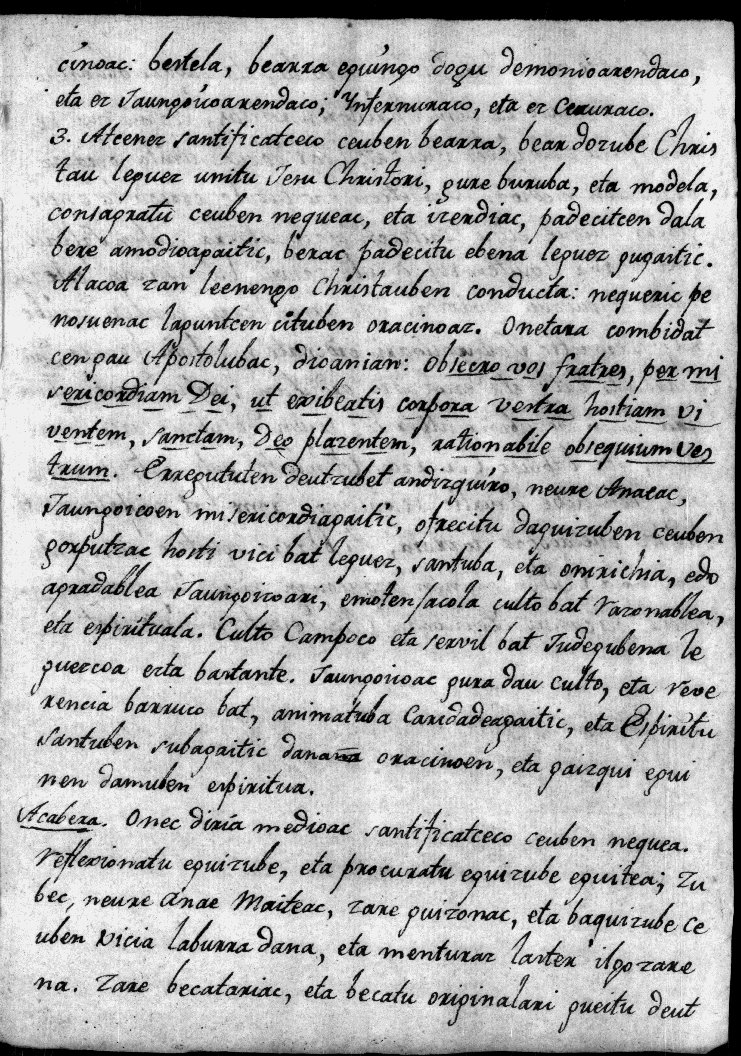 cinoac: bestela, bearra eguingo dogu demonioarendaco,
eta ez Jaungoicoarendaco; Ynfernuraco, eta ez Ceruraco.
3. Atcenez santificatceco ceuben bearra, bear dozube Chris
tau leguez unitu Jesu Christori, gure buruba, eta modela,
consagratu ceuben nequeac, eta izerdiac, padecitcen dala
bere amodioagaitic, berac padecitu ebena leguez gugaitic.
Alacoa zan leenengo Christauben conducta: nequeric pe
nosuenac laguntcen cituben oracinoaz. Onetara combidat
cen gau Apostolubac, dioanian: obsecro vos fratres, per mi
sericordiam Dei, ut exibeatis corpora vestra hostiam vi
ventem, sanctam, Deo plazentem, rationabile obsequium ves
trum. Erregututen deutzubet andizquiro, neure Anaeac,
Jaungoicoen misericordiagaitic, ofrecitu daguizuben ceuben
gorputzac hosti vici bat leguez, santuba, eta onirichia, edo
agradablea Jaungoicoari, emoten jacola culto bat razonablea,
eta espirituala. Culto Campoco eta servil bat Judegubena le
guezcoa ezta bastante. Jaungoicoac gura dau culto, eta reve
rencia barruco bat, animatuba Caridadeagaitic, eta Espiritu
santuben subagaitic dana oracinoen, eta gaizqui egui
nen damuben espiritua.
Acabera. Onec dira medioac santificatceco ceuben nequea.
Reflexionatu eguizube, eta procuratu eguizube eguitea; zu
bec, neure Anae Maiteac, zare guizonac, eta baquizube ce
uben vicia laburra dana, eta menturaz laster ilgo zare
na. Zare becatariac, eta becatu originalari gueitu deut